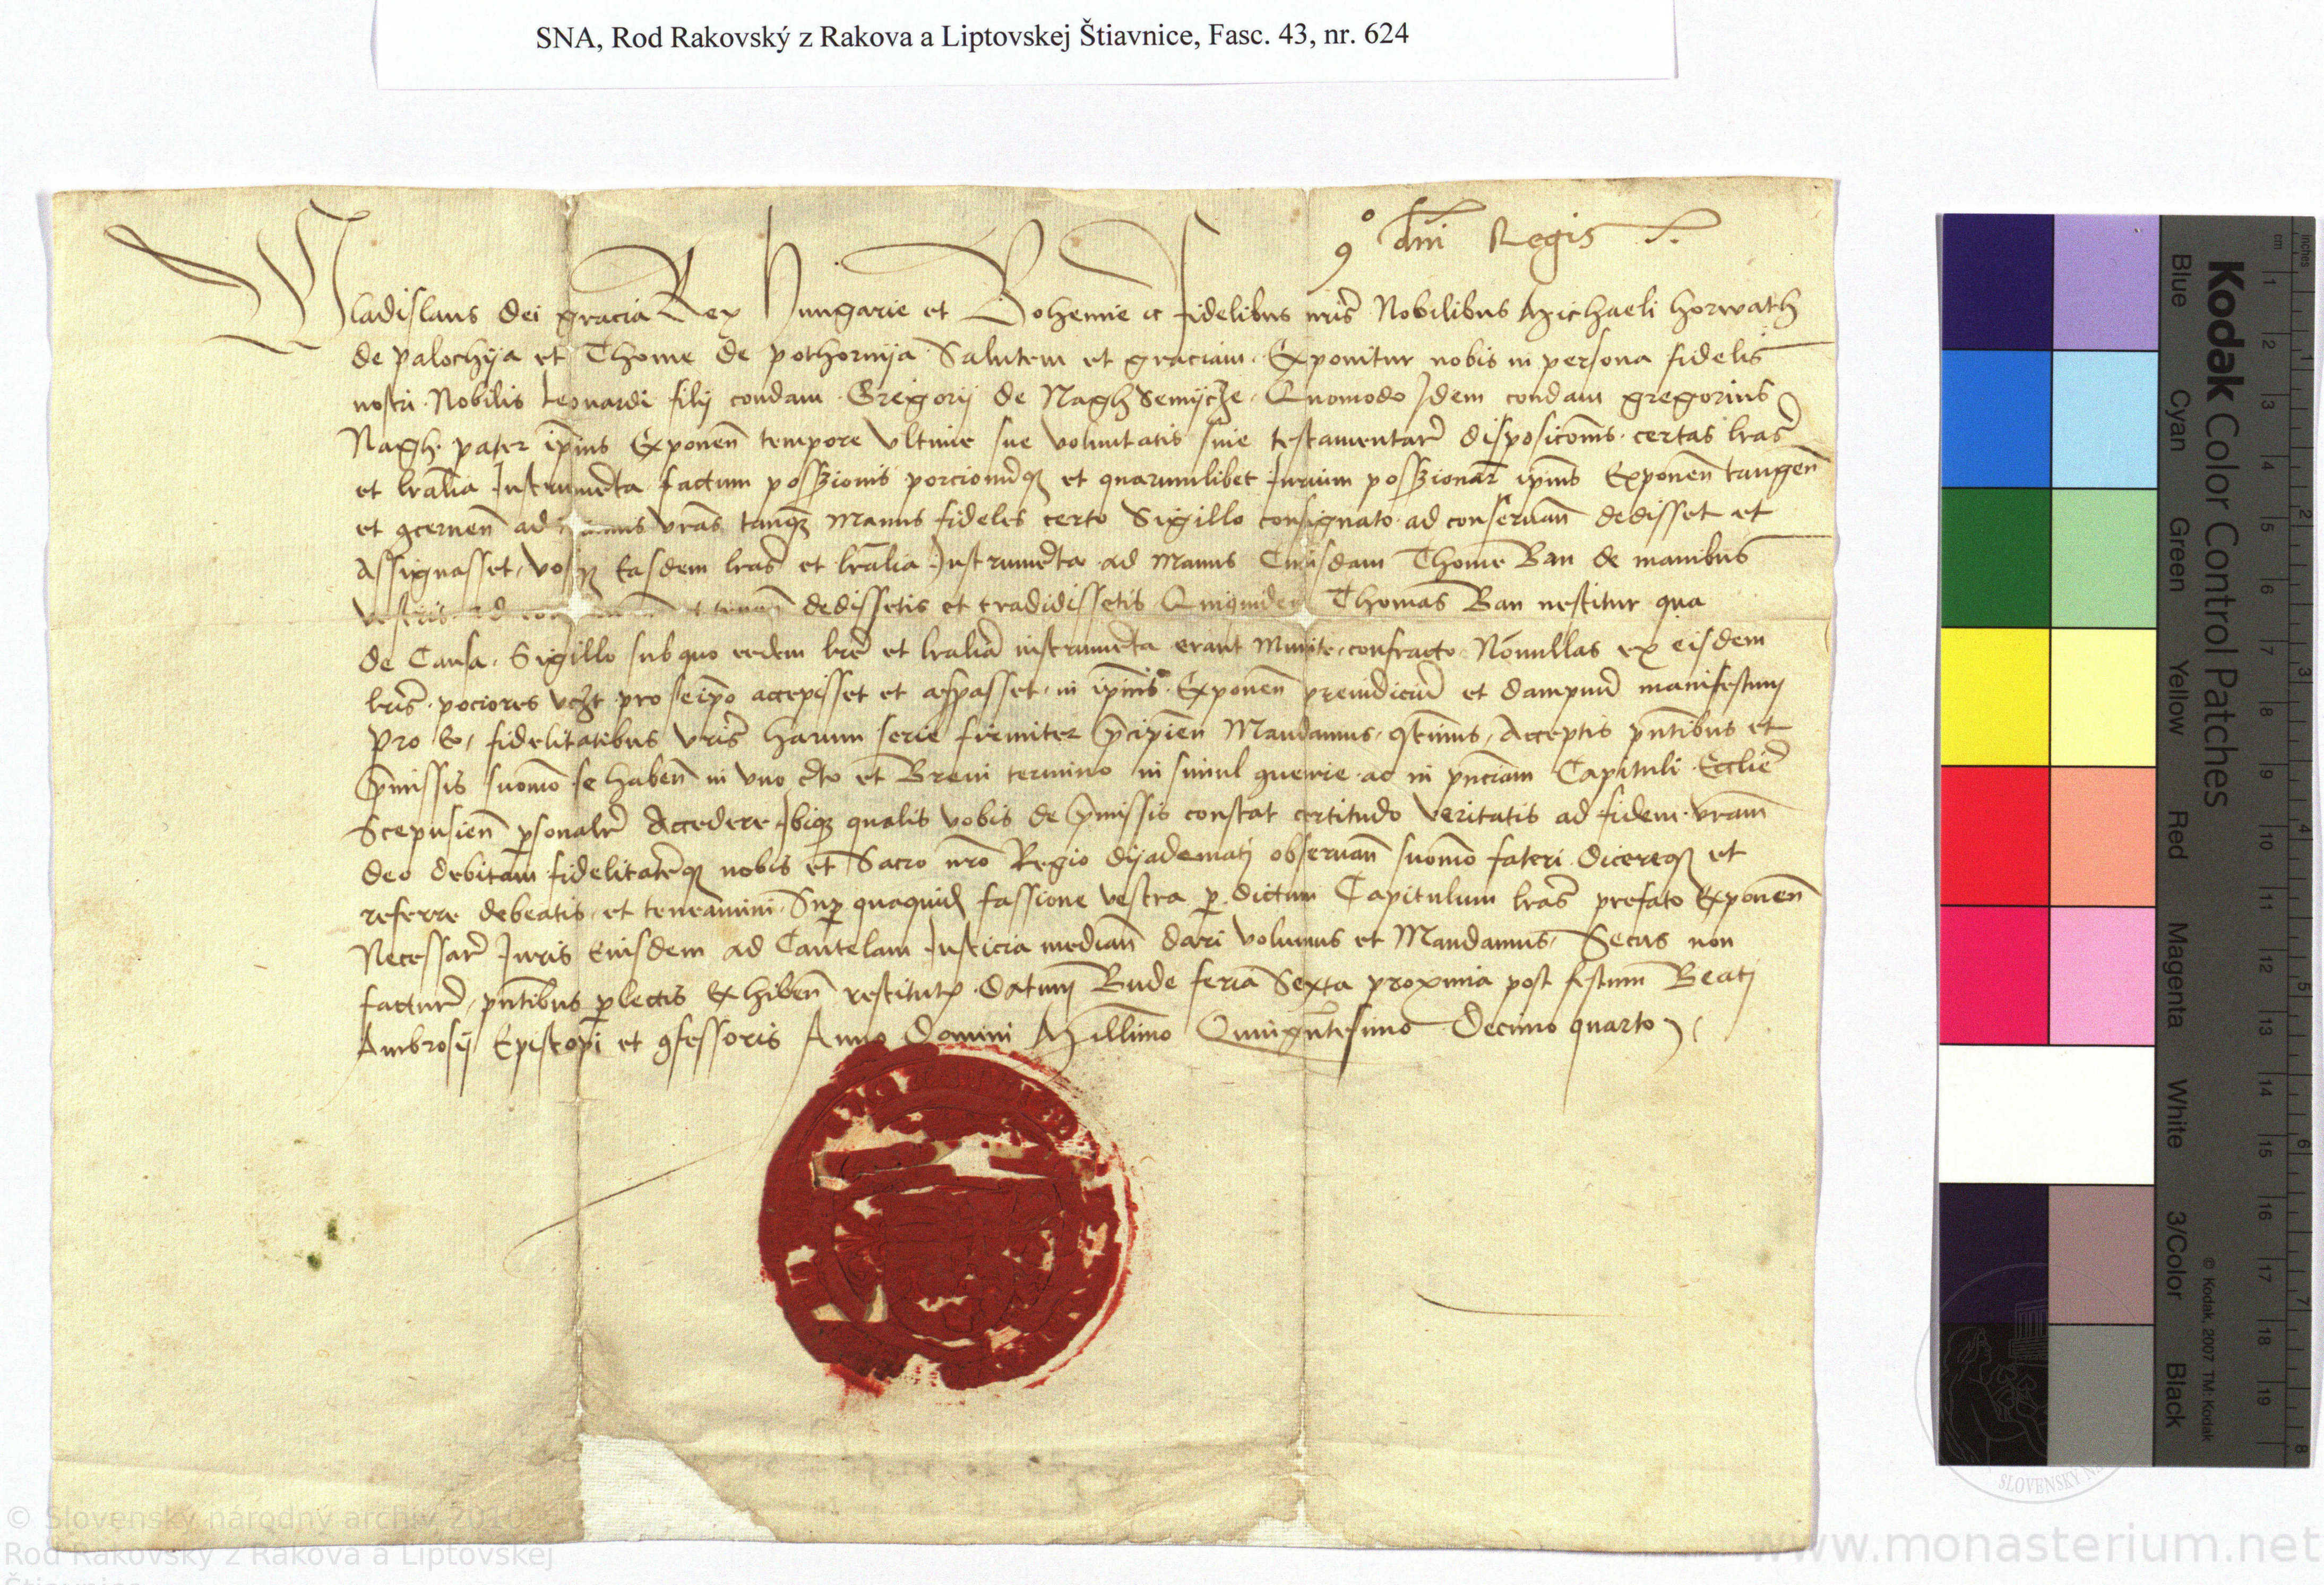 SNA, Rod Rakovský z Rakova a Liptovskej Štiavnice, Fasc. 43, nr. 624
dni Regis
Wladislaus dei gracia Rex Hungarie et Bohemie Fidelibus nris Nobilibus Michaeli horwath
de palochya et Thome de pothornya Salutem et graciam Exponitur nobis in persona fidelis
nostri Nobilis Leonardi filij condam Gregorij de Nagh Quomodo Idem condam gregorius
Nagh pater ipius Exponen tempore ultime sue voluntatis siue testamentar disposicois certas lras
et lralia Instrumeta factum porcionuq et quarumlibet Iurium ipius Exponen tangen
et gcernen ad vras tanq manus fideles certo Sigillo consignato ad conseruan dedisset et
Assignasset vosq Easdem lras et lralia Instrumeta ad manus Cuiusdam Thome Ban de manibus
vestris dedissetis et tradidissetis Quiquide Thomas Ban nescitur qua
de Causa Sigillo sub quo eedem lre et lralia instrumeta erant Munite confracto Nonullas ex eisdem
lris pociores pro seipo accepisset et in ipius Exponen preiudiciu et dampnu manifestum
Pro Eo fidelitatibus vris harum serie firmiter pcipien Mandamus Acceptis pntibus et
pmissis suomo se haben in vno cto et Breui termino in simul guenire ac in pnciam Capituli Ecclie
Scepusien psonalr Accedere Ibiq qualis vobis de pmissis constat certitudo veritatis ad fidem vram
deo debitam fidelitateq nobis et Sacro nro Regio dyademati obseruan suomo fateri dicereq et
referre debeatis et teneamini Sup quaquid fassione vestra p dictum Capitulum lras prefato Exponen
Necessar Iuris Eiusdem ad Cautelam Iusticia median dari volumus et Mandamus Secus non
factur pntibus plectis Exhiben restitut Datum Bude feria Sexta proxima post festum Beati
Ambrosij Episcopi et gfessoris Anno Domini Millimo Quingntesimo Decimo quarto
Kodak Color Control Patches
Blue Cyan Green Yellow Red Magenta White 3/Color Black
© Kodak, 2007 TM: Kodak
cm 1 2 3 4 5 6 7 8 9 10 11 12 13 14 15 16 17 18 19
inches 1 2 3 4 5 6 7 8
© Slovenský národný archív 2010
Rod Rakovský z Rakova a Liptovskej
Štiavnice
www.monasterium.net